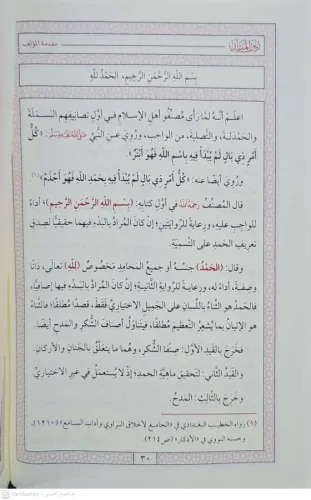 مقدمة المؤلف
بِسْمِ اللهِ الرَّحْمَنِ الرَّحِيمِ، الحَمْدُ للهِ
اعلَمْ أنَّهُ لمَّا رأى مُصنِّفُو أهلِ الإسلامِ في أوَّلِ تصانِيفِهم البَسمَلةَ
والحَمْدَلةَ، والتَّصلِيةَ، من الواجبِ، ورُوِيَ عنِ النَّبيِّ صَلَّى اللهُ عَلَيْهِ وَسَلَّمَ: «كُلُّ
أَمْرٍ ذِي بَالٍ لَمْ يُبْدَأْ فِيهِ بِاسْمِ اللهِ فَهُوَ أَبْتَرُ».
ورُوِيَ أيضًا عنه: «كُلُّ أَمْرٍ ذِي بَالٍ لَمْ يُبْدَأْ فِيهِ بِحَمْدِ اللهِ فَهُوَ أَجْذَمُ»(١).
قال المُصنِّفُ رَحِمَهُ اللهُ في أوَّل كتابِه: (بِسْمِ اللهِ الرَّحْمَنِ الرَّحِيمِ)؛ أداءً
للواجبِ عليه، ورِعايةً للرِّوايتَينِ؛ إنْ كانَ المُرادُ بالبَدْءِ فيهما حقيقيًّا لصِدقِ
تعريفِ الحَمدِ على التَّسمِيَةِ.
وقال: (الحَمْدُ) جنسُه أو جميعُ المَحامِدِ مَخصُوصٌ (للهِ) تعالَى، ذاتًا
وصِفةً، أداءً له، ورِعايةً للرِّوايةِ الثَّانِيةِ؛ إنْ كان المُرادُ بالبَدْءِ فيه إضافِيًّا،
فالحَمدُ هو الثَّناءُ باللِّسانِ على الجَمِيلِ الاختِيارِيِّ فقَطْ، قَصدًا مُطلَقًا، فالثَّناءُ
هو الإتيانُ بما يُشعِرُ التَّعظِيمَ مُطلَقًا، فيَتناوَلُ أصنافَ الشُّكرِ والمَدحِ أيضًا.
فخَرَجَ بالقَيدِ الأوَّلِ: صِنفَا الشُّكرِ، وهُما ما يتعَلَّقُ بالجَنانِ والأركانِ.
والقَيدُ الثَّاني: لتَحقِيقِ ماهِيَّةِ الحمدِ؛ إذْ لا يُستعمَلُ في غيرِ الاختِيارِيِّ.
وخرَجَ بالثَّالثِ: المَدحُ.
(١) رواه الخطيب البغدادي في «الجامع لأخلاق الراوي وآداب السامع» (١٢١٠)،
وحسنه النووي في «الأذكار» (ص٢١٤).
٣٠
CamScanner